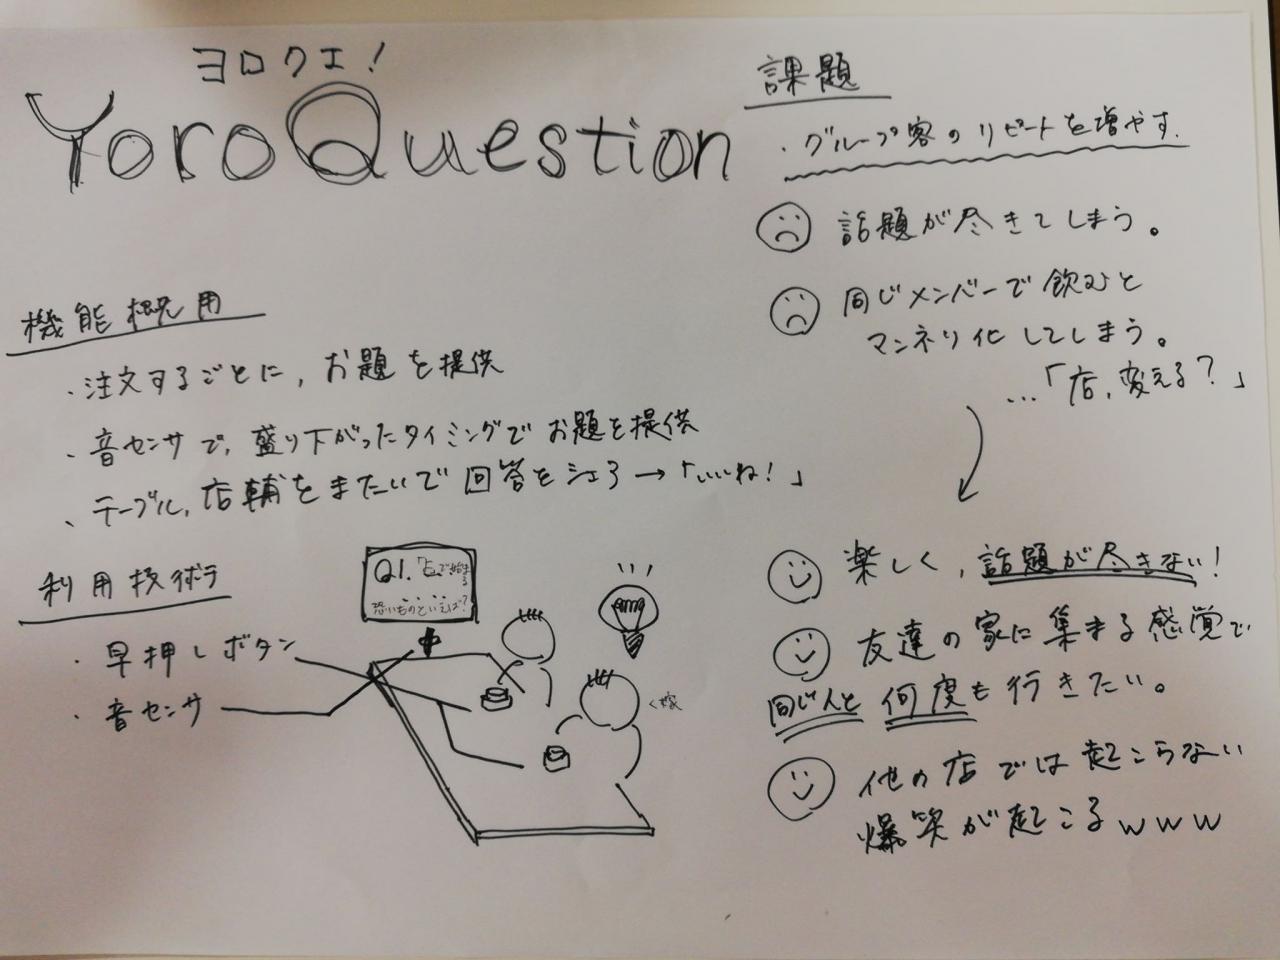 ヨロクエ!
YoroQuestion
課題
・グループ客のリピートを増やす.
話題が尽きてしまう。
同じメンバーで飲むと
マンネリ化してしまう。
…「店,変える?」
機能概用
・注文するごとに,お題を提供
・音センサで,盛り下がったタイミングでお題を提供
、テーブル,店輔をまたいで回答をシェア→「いいね!」
利用技術ラ
・早押しボタン
・音センサ
Q1.
で始まる
恐いものといえば?
楽しく,話題が尽きない!
友達の家に集まる感覚で
同じ人と何度も行きたい。
他の店では起こらない
爆笑が起こるwww